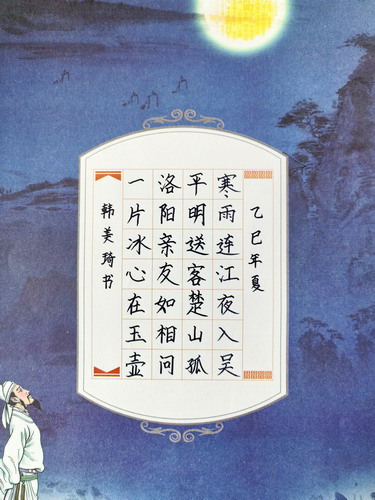 乙巳年夏
寒雨连江夜入吴
平明送客楚山孤
洛阳亲友如相问
一片冰心在玉壶
韩美琦书